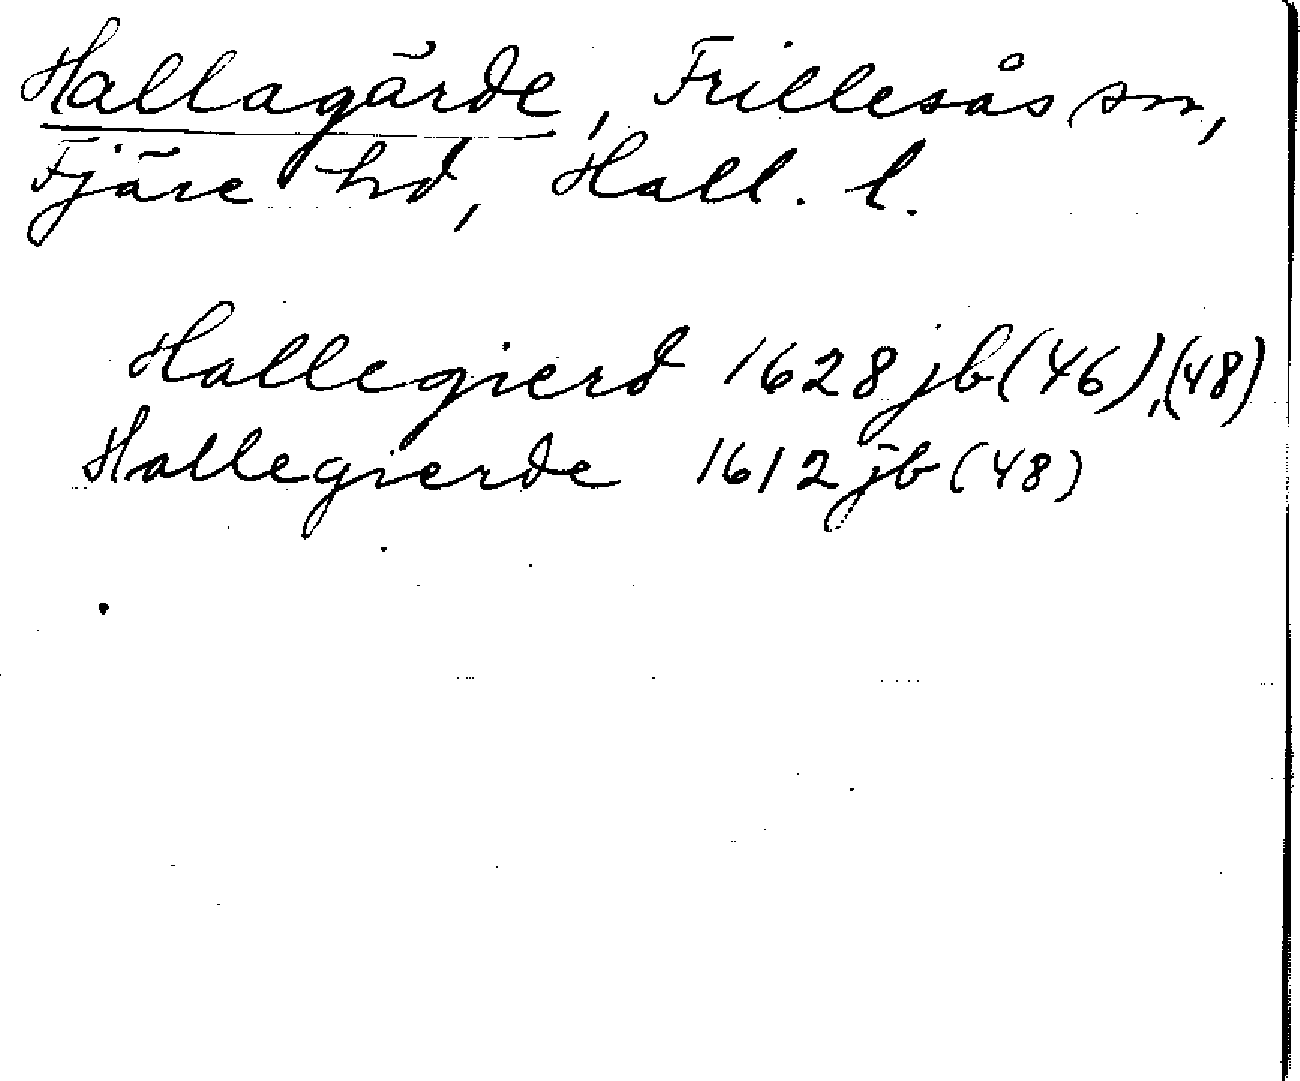 Hallagärde, Frillesås sn,
Fjäre hd, Hall. l.
Hallegierd 1628 jb (46), (48)
Hallegierde 1612 jb (48)